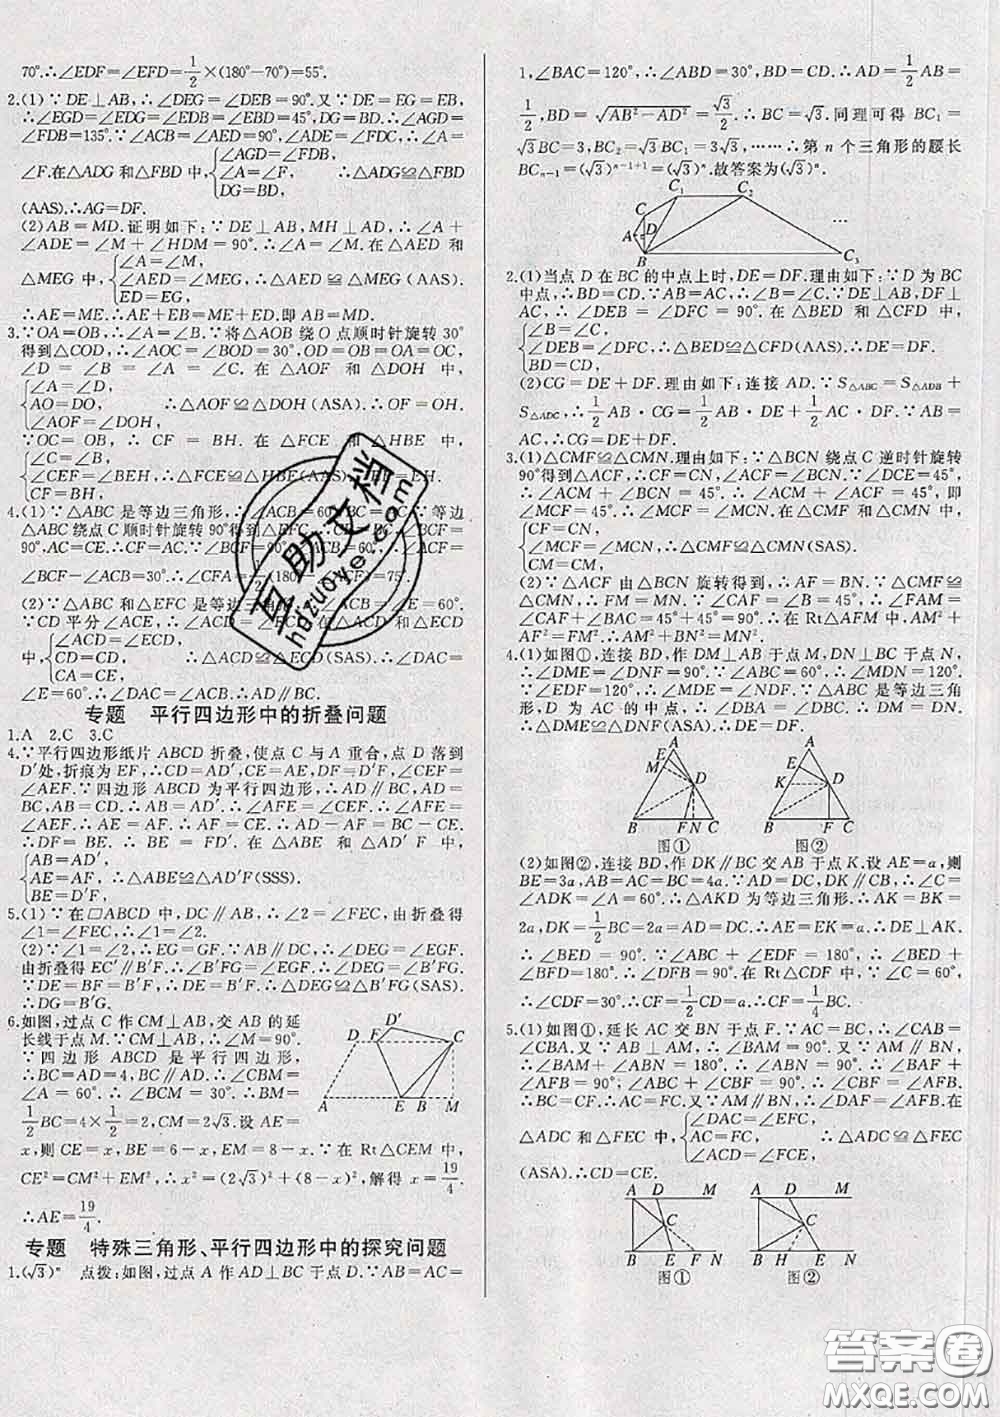 70°.∴∠EDF=∠EFD=1/2×(180°-70°)=55°.
2.(1)∵DE⊥AB,∴∠DEG=∠DEB=90°.又∵DE=EG=EB,
∴∠EGD=∠EDG=∠EDB=∠EBD=45°,DG=BD.∴∠AGD=
∠FDB=135°.∵∠ACB=∠AED=90°,∠ADE=∠FDC,∴∠A=
∠F.在△ADG和△FBD中,{∠AGD=∠FDB, ∠A=∠F, DG=BD, ∴△ADG≌△FBD
(AAS).∴AG=DF.
(2)AB=MD.证明如下:∵DE⊥AB,MH⊥AD,∴∠A+
∠ADE=∠M+∠HDM=90°.∴∠A=∠M.在△AED和
△MEG中,{∠A=∠M, ∠AED=∠MEG, ED=EG, ∴△AED≌△MEG(AAS).
∴AE=ME.∴AE+EB=ME+ED.即AB=MD.
3.∵OA=OB,∴∠A=∠B.∵将△AOB绕O点顺时针旋转30°
得到△COD,∴∠AOC=∠BOD=30°.∴OD=OB=OA=OC,
∠D=∠B=∠A=∠C.在△AOF和△DOH中,
{∠A=∠D, AO=DO, ∠AOF=∠DOH, ∴△AOF≌△DOH(ASA).∴OF=OH.
∵OC=OB,∴CF=BH.在△FCE和△HBE中,
{∠C=∠B, ∠CEF=∠BEH, CF=BH, ∴△FCE≌△HBE(AAS).∴
4.(1)∵△ABC是等边三角形,∴∠ACB=60°,BC=AC.∵等边
△ABC绕点C顺时针旋转90°得到△EFC,∴∠BCF=
90°,AC=CE.∴CF=AC.∵∠BCF=90°,∠ACB=60°,∴∠ACF=
∠BCF-∠ACB=30°.∴∠CFA=1/2(180°-∠ACF)=75°.
(2)∵△ABC和△EFC是等边三角形,∴∠ACB=∠E=60°.
∵CD平分∠ACE,∴∠ACD=∠ECD.在△ACD和△ECD
中,{∠ACD=∠ECD, CD=CD, CA=CE, ∴△ACD≌△ECD(SAS).∴∠DAC=
∠E=60°.∴∠DAC=∠ACB.∴AD∥BC.
专题 平行四边形中的折叠问题
1.A 2.C 3.C
4.∵平行四边形纸片ABCD折叠,使点C与A重合,点D落到
D′处,折痕为EF,∴CD=AD′,CE=AE,DF=D′F,∠CEF=
∠AEF.∵四边形ABCD为平行四边形,∴AD∥BC,AD=
BC,AB=CD.∴AB=AD′.∴∠CEF=∠AFE.∴∠AFE=
∠AEF.∴AF=AE.∴AF=CE.∴AD-AF=BC-CE.
∴DF=BE.∴BE=D′F.在△ABE和△AD′F中,
{AB=AD′, AE=AF, BE=D′F, ∴△ABE≌△AD′F(SSS).
5.(1)∵在□ABCD中,DC∥AB,∴∠2=∠FEC,由折叠得
∠1=∠FEC,∴∠1=∠2.
(2)∵∠1=∠2,∴EG=GF.∵AB∥DC,∴∠DEG=∠EGF.
由折叠得EC′∥B′F,∴∠B′FG=∠EGF.∴∠DEG=∠B′FG.
∵DE=BF=B′F,∴DE=B′F.∴△DEG≌△B′FG(SAS).
∴DG=B′G.
6.如图,过点C作CM⊥AB,交AB的延
长线于点M.∵CM⊥AB,∴∠M=90°.
∵四边形ABCD是平行四边形,
∴BC=AD=4,BC∥AD.∴∠CBM=
∠A=60°.∴∠BCM=30°.∴BM=
1/2BC=4×1/2=2,CM=2√3.设AE=
x,则CE=x,BE=6-x,EM=8-x.∵在Rt△CEM中,
CE²=CM²+EM²,∴x²=(2√3)²+(8-x)²,解得x=19/4.
∴AE=19/4.
D′ F C
A E B M
专题 特殊三角形、平行四边形中的探究问题
1.(√3)ⁿ 点拨:如图,过点A作AD⊥BC于点D.∵AB=AC=
1,∠BAC=120°,∴∠ABD=30°,BD=CD.∴AD=1/2AB=
1/2,BD=√(AB²-AD²)=√3/2.∴BC=√3.同理可得BC₁=
√3BC=3,BC₂=√3BC₁=3√3,……∴第n个三角形的腰长
BCₙ₋₁=(√3)ⁿ⁻¹⁺¹=(√3)ⁿ.故答案为(√3)ⁿ.
C₁ C₂
C A D B C₃ …
2.(1)当点D在BC的中点上时,DE=DF.理由如下:∵D为BC
中点,∴BD=CD.∵AB=AC,∴∠B=∠C.∵DE⊥AB,DF⊥
AC,∴∠DEB=∠DFC=90°.在△BED和△CFD中,
{∠B=∠C, ∠DEB=∠DFC, BD=CD, ∴△BED≌△CFD(AAS).∴DE=DF.
(2)CG=DE+DF.理由如下:连接AD.∵S△ABC=S△ADB+
S△ADC,∴1/2AB·CG=1/2AB·DE+1/2AC·DF.∵AB=
AC,∴CG=DE+DF.
3.(1)△CMF≌△CMN.理由如下:∵△BCN绕点C逆时针旋转
90°得到△ACF,∴CF=CN,∠ACF=∠BCN.∵∠DCE=45°,
∴∠ACM+∠BCN=45°.∴∠ACM+∠ACF=45°,即
∠MCF=45°.∴∠MCF=∠MCN.在△CMF和△CMN中,
{CF=CN, ∠MCF=∠MCN, CM=CM, ∴△CMF≌△CMN(SAS).
(2)∵△ACF由△BCN旋转得到,∴AF=BN.∵△CMF≌
△CMN,∴FM=MN.∵∠CAF=∠B=45°,∴∠FAM=
∠CAF+∠BAC=45°+45°=90°.∴在Rt△AFM中,AM²+
AF²=FM².∴AM²+BN²=MN².
4.(1)如图①,连接BD,作DM⊥AB于点M,DN⊥BC于点N,
∴∠DME=∠DNF=90°.∵∠ABC=60°,∴∠MDN=120°.
∵∠EDF=120°,∴∠MDE=∠NDF.∵△ABC是等边三角
形,D为AC的中点,∴∠DBA=∠DBC.∴DM=DN.
∴△DME≌△DNF(ASA).∴DE=DF.
A E M D B F N C 图①
A E K D B F C 图②
(2)如图②,连接BD,作DK∥BC交AB于点K.设AE=a,则
BE=3a,AB=BC=AC=4a.∵AD=DC,DK∥BC,∴∠C=
∠ADK=∠A=60°.∴△AKD为等边三角形.∴AK=BK=
2a,DK=1/2BC=2a=AD=DC.∴AE=EK=a.∴DE⊥AK.
∴∠BED=90°.∵∠ABC+∠EDF=180°,∴∠BED+
∠BFD=180°.∴∠DFB=90°.∴在Rt△CDF中,∵∠C=60°,
∴∠CDF=30°.∴CF=1/2CD=1/2a.∴CF=1/4BC.
5.(1)如图①,延长AC交BN于点F.∵AC=BC,∴∠CAB=
∠CBA.又∵AB⊥AM,∴∠BAM=90°.又∵AM∥BN,
∴∠BAM+∠ABN=180°.∴∠ABN=90°.∴∠BAF+
∠AFB=90°,∠ABC+∠CBF=90°.∴∠CBF=∠AFB.
∴BC=CF.∴AC=FC.又∵AM∥BN,∴∠DAF=∠AFB.在
△ADC和△FEC中,{∠DAC=∠EFC, AC=FC, ∠ACD=∠FCE, ∴△ADC≌△FEC
(ASA).∴CD=CE.
A D M C B E F N 图①
A D M C B H E N 图②
互助文档
hdzuoye.com
答案圈
MXQE.COM